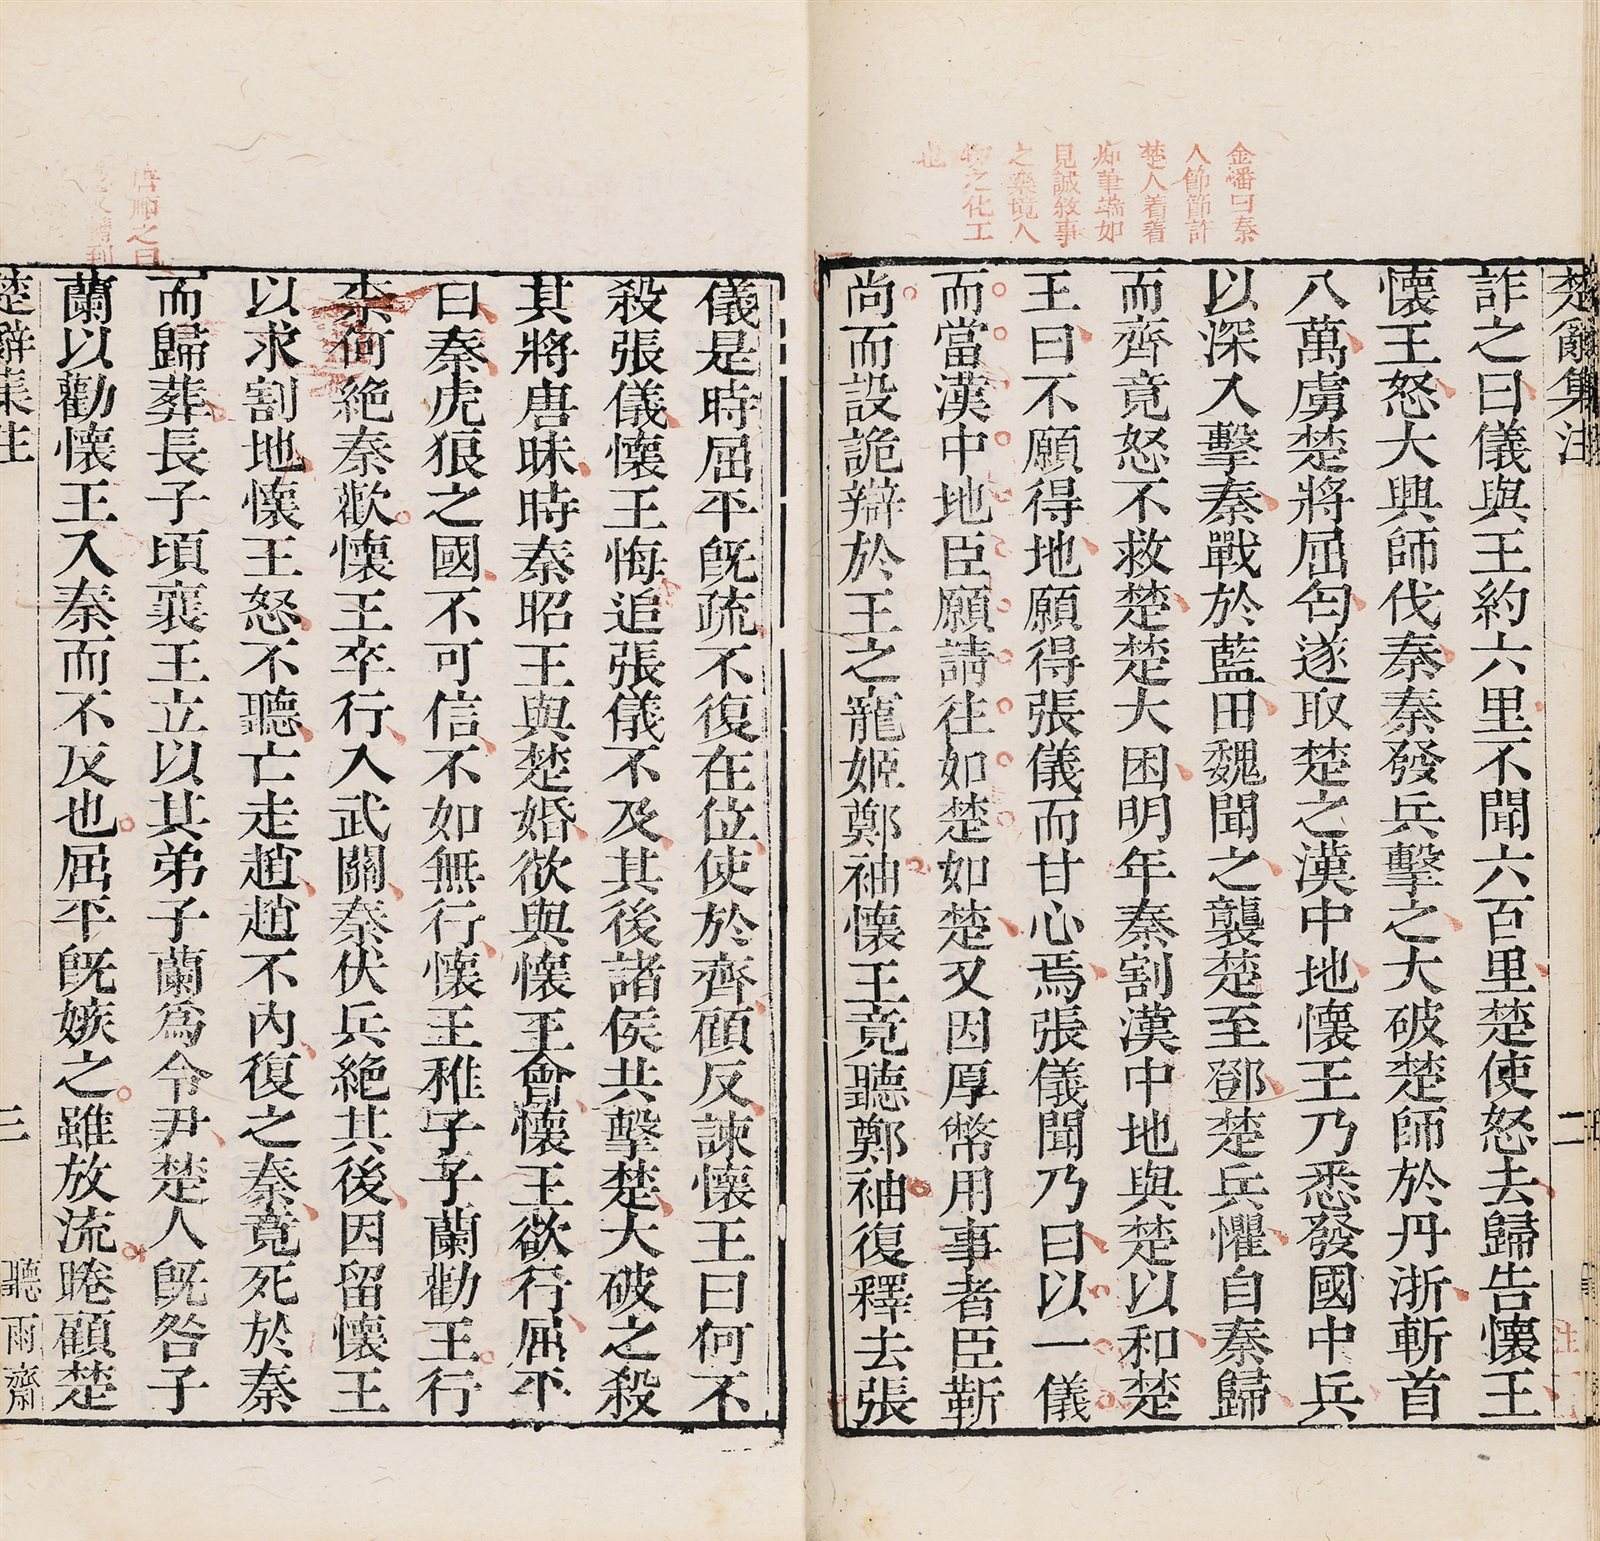 楚辭集注
二
詐之曰儀與王約六里不聞六百里楚使怒去歸告懷王
懷王怒大興師伐秦秦發兵擊之大破楚師於丹浙斬首
八萬虜楚將屈匄遂取楚之漢中地懷王乃悉發國中兵
以深入擊秦戰於藍田魏聞之襲楚至鄧楚兵懼自秦歸
而齊竟怒不救楚楚大困明年秦割漢中地與楚以和楚
王曰不願得地願得張儀而甘心焉張儀聞乃曰以一儀
而當漢中地臣願請往如楚如楚又因厚幣用事者臣靳
尚而設詭辯於王之寵姬鄭袖懷王竟聽鄭袖復釋去張
金蟠曰秦
人節節詐
楚人着着
癡筆端如
見誠敘事
之樂境人
物之化工
也
儀是時屈平既疏不復在位使於齊顧反諫懷王曰何不
殺張儀懷王悔追張儀不及其後諸侯共擊楚大破之殺
其將唐昧時秦昭王與楚婚欲與懷王會懷王欲行屈平
曰秦虎狼之國不可信不如無行懷王稚子子蘭勸王行
柰何絶秦歡懷王卒行入武關秦伏兵絶其後因留懷王
以求割地懷王怒不聽亡走趙趙不內復之秦竟死於秦
而歸葬長子頃襄王立以其弟子蘭爲令尹楚人既咎子
蘭以勸懷王入秦而不反也屈平既嫉之雖放流睠顧楚
唐順之曰
轉到
楚辭集注
三
聽雨齋